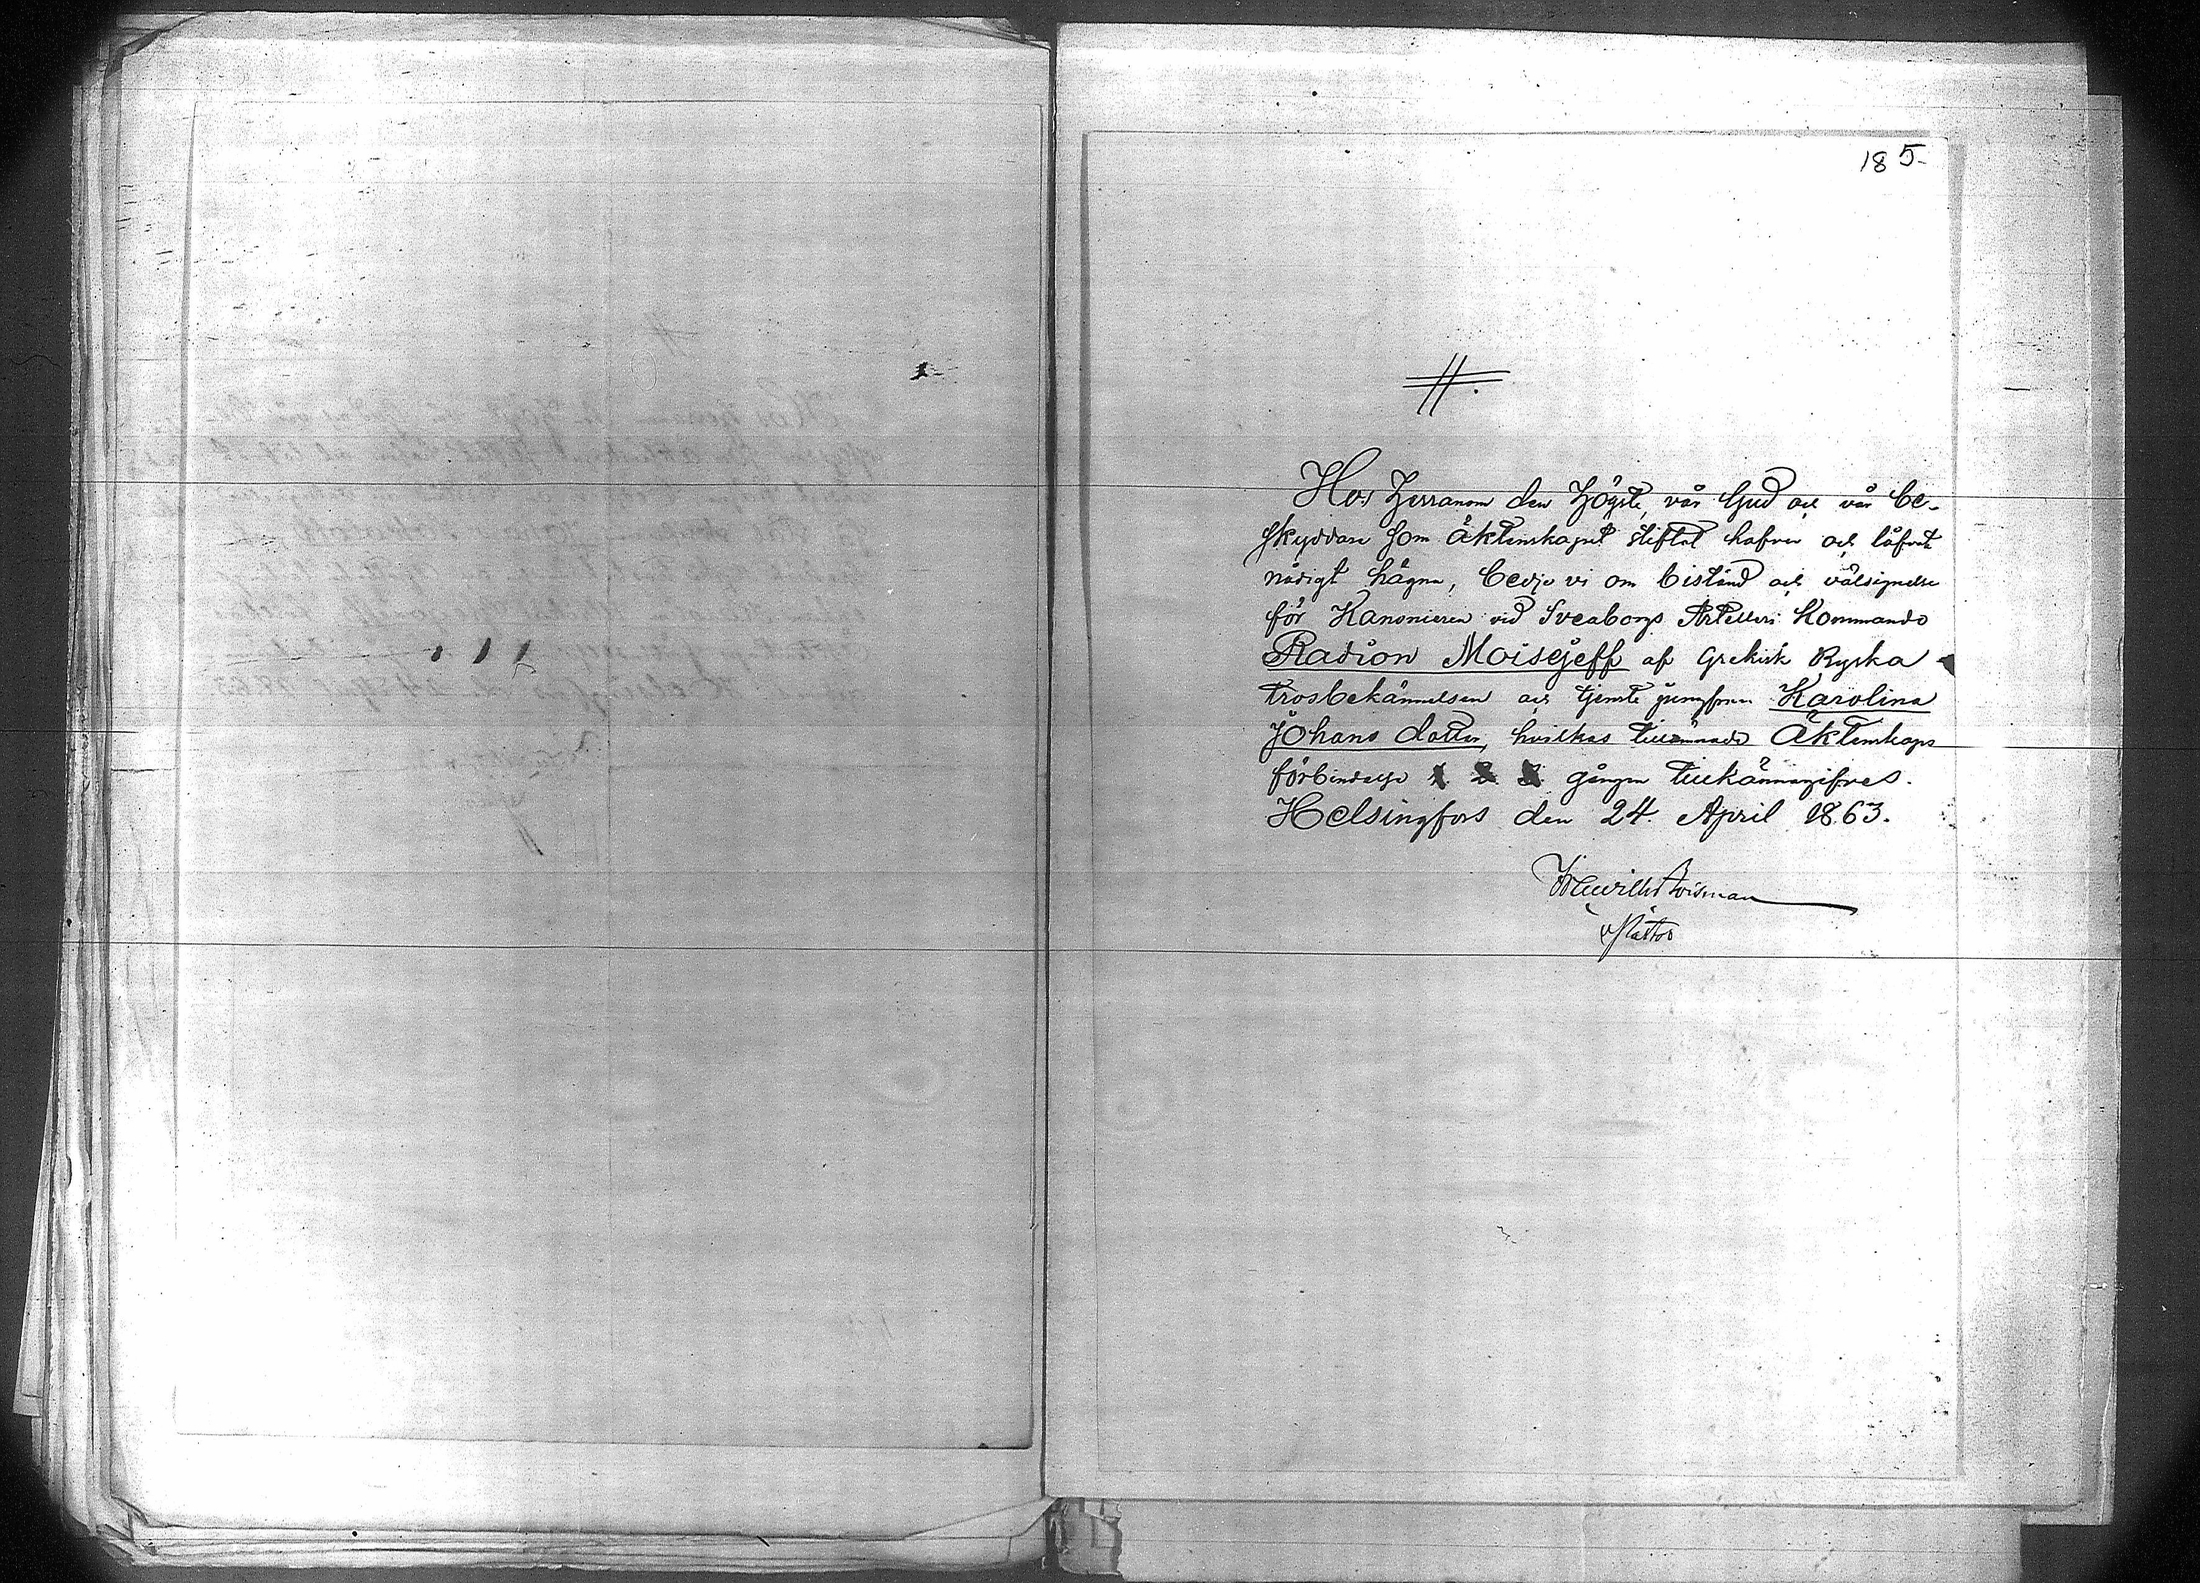 185.
H.
Hos Herranom den Högste, vår Gud och vår be-
skyddare som Äktenskapet stiftat hafver och låfvat
nådigt hägna, bedje vi om bistånd och välsignelse
för Kanonieren vid Sveaborgs Artelleri Kommando
Radion Moisejeff af Grekisk Ryska
trosbekännelsen och tjenste jungfrun Karolina
Johans dotter, hvilkas tillämnade Äktenskaps
förbindelse 1 2 3 gången tillkännagifves.
Helsingfors den 24. April 1863.
v Pastor